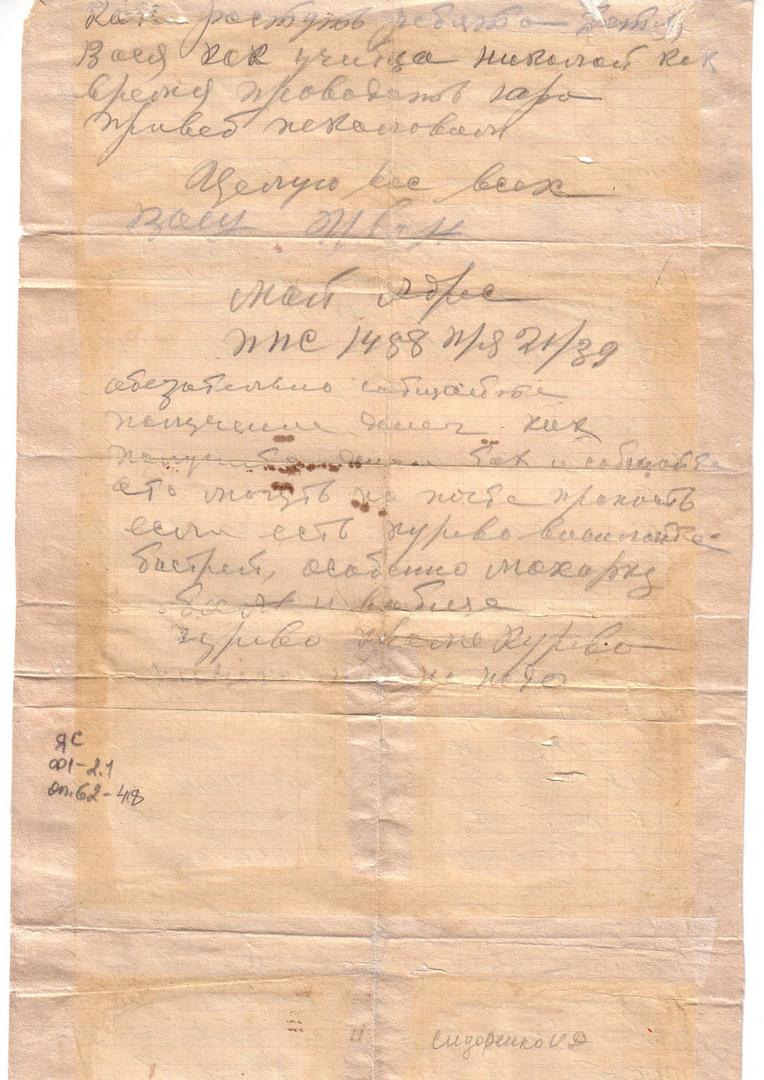 растуть ребята
Вася как учитца николай как
время проводать
привед
Целую вас всех
Ваш Иван
мой Адрес
ППС 1488 П/Я 21/39
абезательно сообщайте
получение денег как
получите деньги так и сообщайте
ето могуть на почте пропасть
если есть курево высылайте
быстрей, особенно махорку
курево Курево
не надо
ЯС
оф-2.1
оп.62-48
Сидоренко И.Д